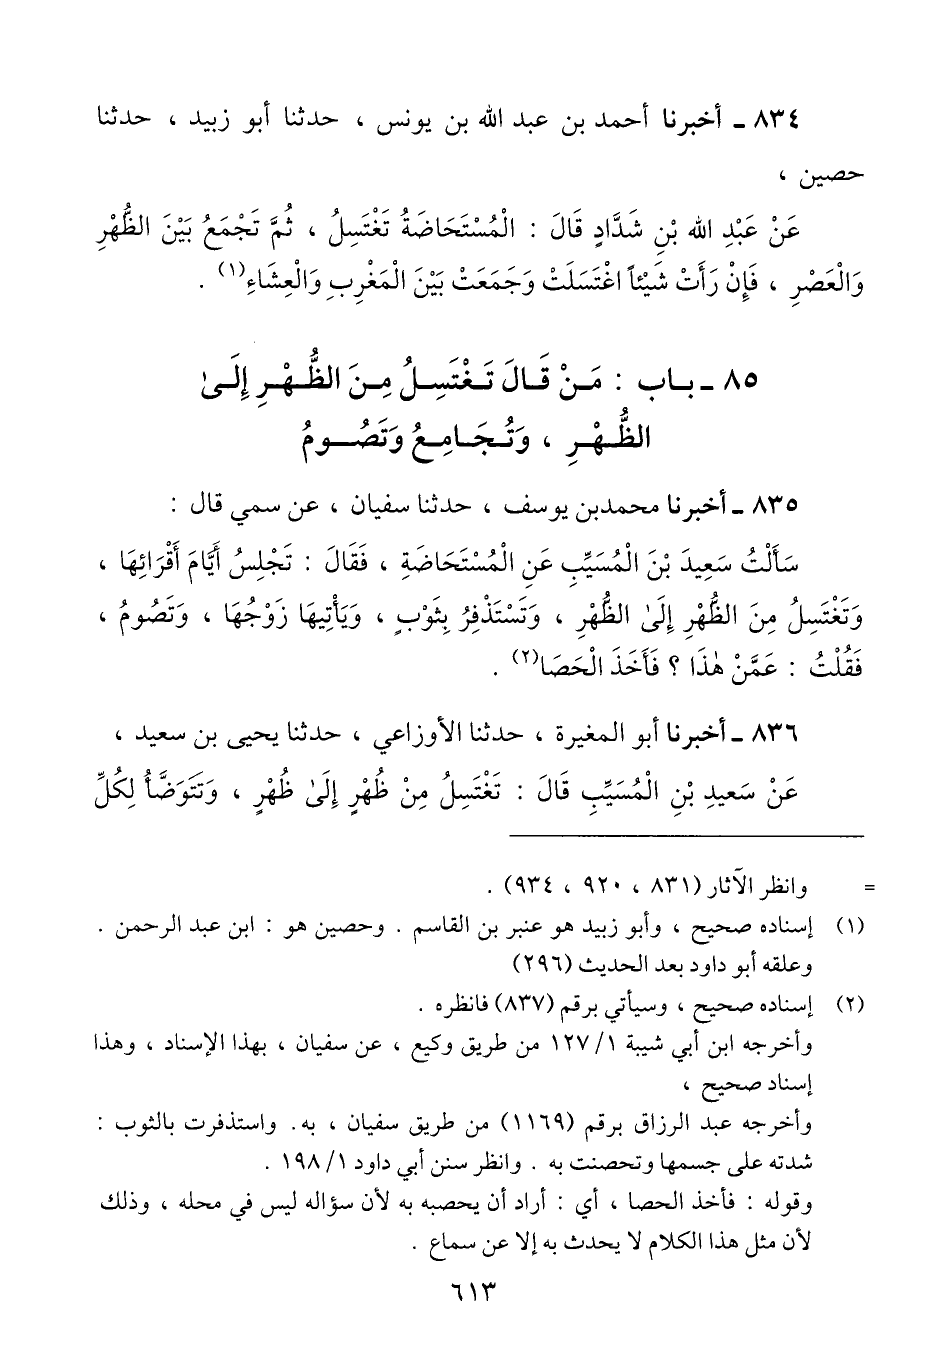 ٨٣٤ ـ أخبرنا أحمد بن عبد الله بن يونس ، حدثنا أبو زبيد ، حدثنا
حصين ،
عَنْ عَبْدِ الله بْنِ شَدَّادٍ قَالَ : الْمُسْتَحَاضَةُ تَغْتَسِلُ ، ثُمَّ تَجْمَعُ بَيْنَ الظُّهْرِ
وَالْعَصْرِ ، فَإِنْ رَأَتْ شَيْئاً اغْتَسَلَتْ وَجَمَعَتْ بَيْنَ الْمَغْرِبِ وَالْعِشَاءِ(١) .
٨٥ ـ بـاب : مَـنْ قَـالَ تَـغْتَسِـلُ مِـنَ الظُّـهْـرِ إِلَـىٰ
الظُّـهْـرِ ، وَتُـجَـامِـعُ وَتَـصُـومُ
٨٣٥ ـ أخبرنا محمدبن يوسف ، حدثنا سفيان ، عن سمي قال :
سَأَلْتُ سَعِيدَ بْنَ الْمُسَيِّبِ عَنِ الْمُسْتَحَاضَةِ ، فَقَالَ : تَجْلِسُ أَيَّامَ أَقْرَائِهَا ،
وَتَغْتَسِلُ مِنَ الظُّهْرِ إِلَىٰ الظُّهْرِ ، وَتَسْتَذْفِرُ بِثَوْبٍ ، وَيَأْتِيهَا زَوْجُهَا ، وَتَصُومُ ،
فَقُلْتُ : عَمَّنْ هٰذَا ؟ فَأَخَذَ الْحَصَا(٢) .
٨٣٦ ـ أخبرنا أبو المغيرة ، حدثنا الأوزاعي ، حدثنا يحيى بن سعيد ،
عَنْ سَعِيدِ بْنِ الْمُسَيِّبِ قَالَ : تَغْتَسِلُ مِنْ ظُهْرٍ إِلَىٰ ظُهْرٍ ، وَتَتَوَضَّأُ لِكُلِّ
= وانظر الآثار (٨٣١ ، ٩٢٠ ، ٩٣٤) .
(١) إسناده صحيح ، وأبو زبيد هو عنبر بن القاسم . وحصين هو : ابن عبد الرحمن .
وعلقه أبو داود بعد الحديث (٢٩٦)
(٢) إسناده صحيح ، وسيأتي برقم (٨٣٧) فانظره .
وأخرجه ابن أبي شيبة ١٢٧/١ من طريق وكيع ، عن سفيان ، بهذا الإسناد ، وهذا
إسناد صحيح ،
وأخرجه عبد الرزاق برقم (١١٦٩) من طريق سفيان ، به. واستذفرت بالثوب :
شدته على جسمها وتحصنت به . وانظر سنن أبي داود ١٩٨/١ .
وقوله : فأخذ الحصا ، أي : أراد أن يحصبه به لأن سؤاله ليس في محله ، وذلك
لأن مثل هذا الكلام لا يحدث به إلا عن سماع .
٦١٣